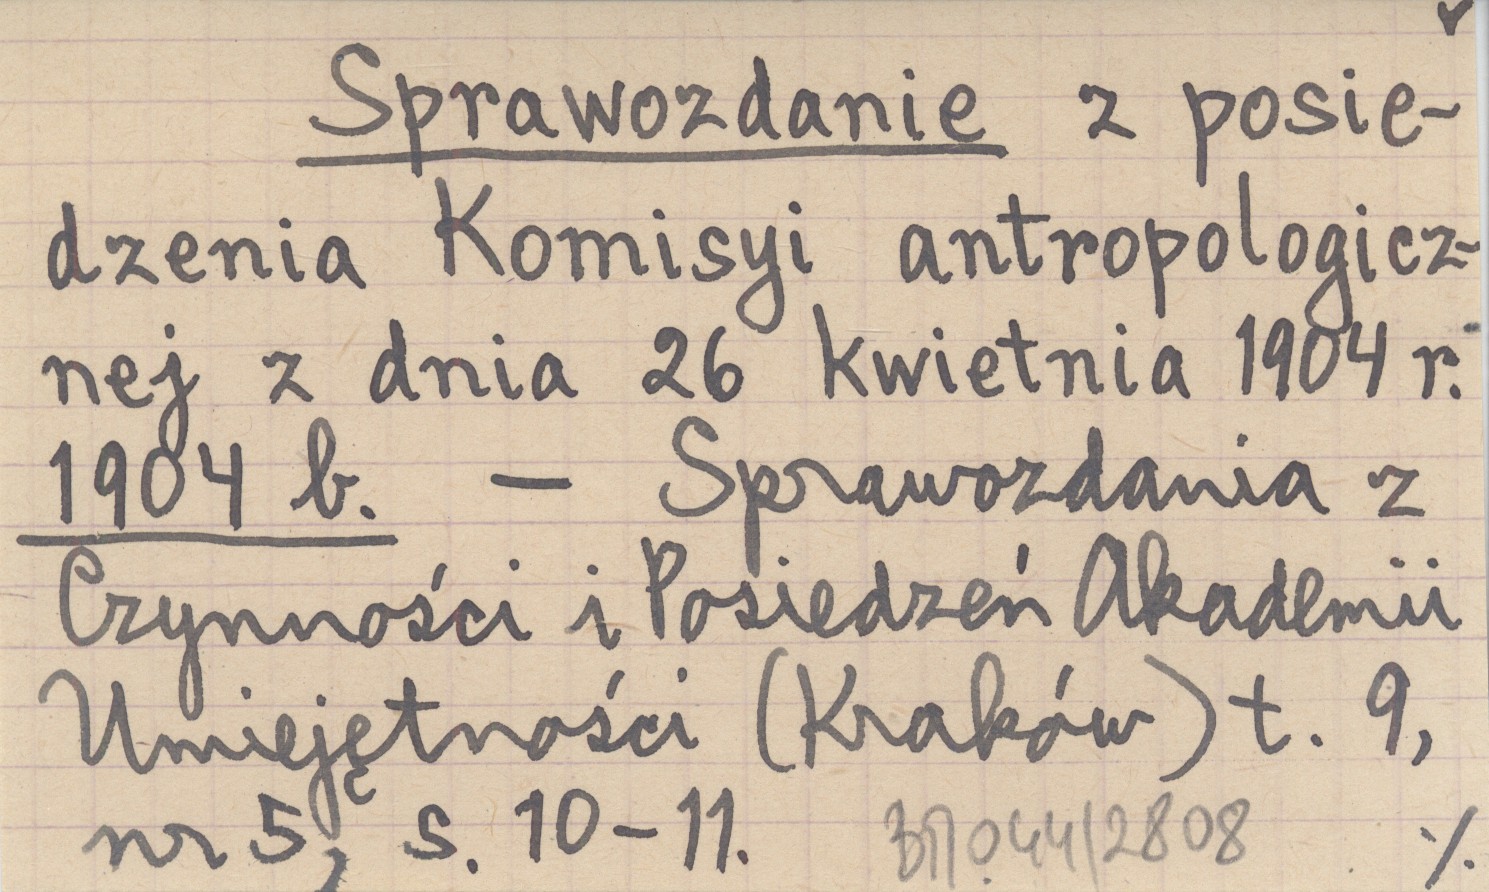 Sprawozdanie z posie-
dzenia Komisyi antropologicz-
nej z dnia 26 kwietnia 1904 r.
1904 b. — Sprawozdania z
Czynności i Posiedzeń Akademii
Umiejętności (Kraków) t. 9,
nr 5, s. 10-11. 044/2808 ./.